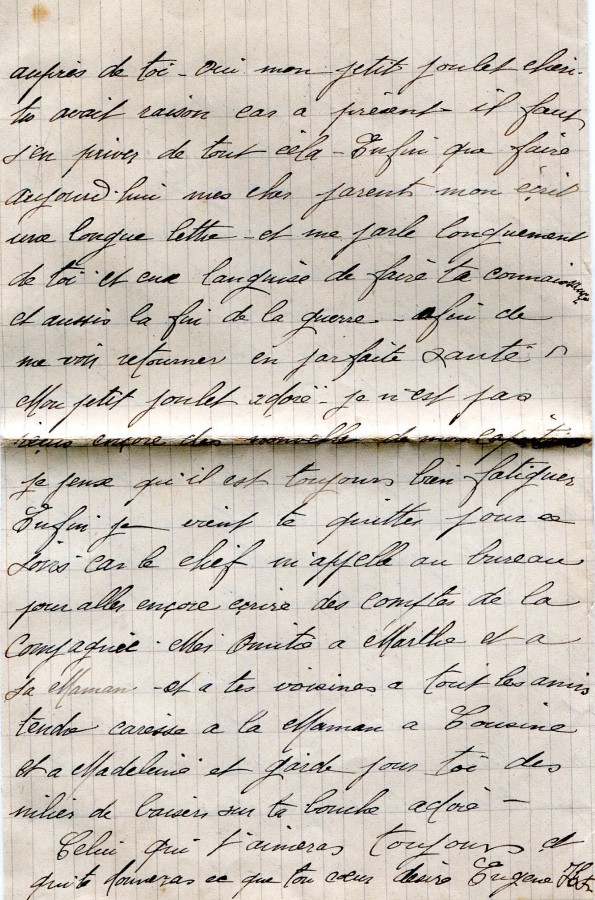 auprès de toi - oui mon petit poulet cheri.
tu avait raison car a présent il faut
s'en priver de tout cela - Enfin que faire
aujourd'hui mes cher parents mon écrit
une longue lettre - et me parle longuement
de toi et eux languise de faire ta connaissance
et aussis la fin de la guerre - afin de
me voir retourner en parfaite santé
Mon petit poulet adoré - je n'est pas
reçus encore des nouvelle de mon
je pense qu'il est toujours bien fatiguer
Enfin je vient te quitter pour ce
soirs car le chef m'appelle au bureau
pour aller encore ecrire des comptes de la
Compagnie. Mes Amitié a Marthe et a
sa Maman - et a tes voisines a tout les amis
tendre caresse a la Maman a Cousine
et a Madeleine et garde pour toi des
milier de baisers sur ta bouche adoré -
Celui qui t'aimeras toujours et
qui te donneras ce que ton cœur désire Eugene